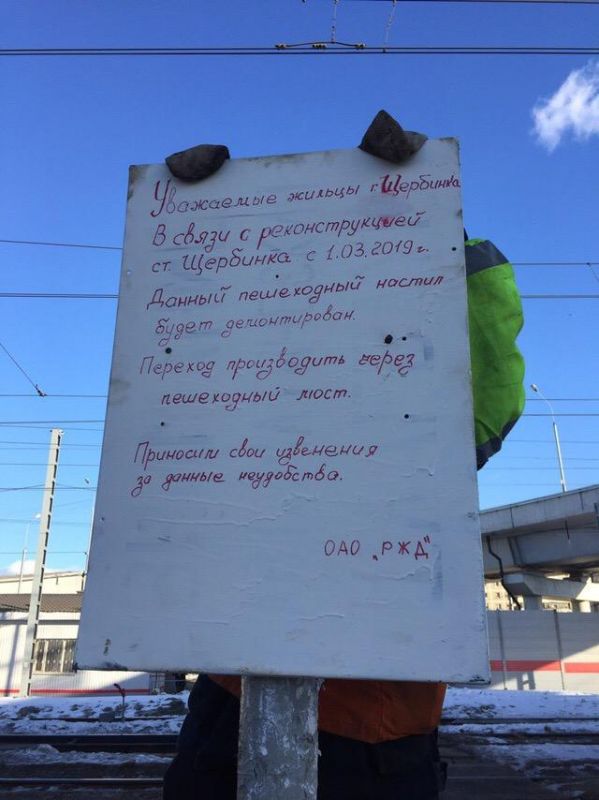 Уважаемые жильцы г. Щербинка
В связи с реконструкцией
ст. Щербинка с 1.03.2019 г.
Данный пешеходный настил
будет демонтирован.
Переход производить через
пешеходный мост.
Приносим свои извенения
за данные неудобства.
ОАО „РЖД"